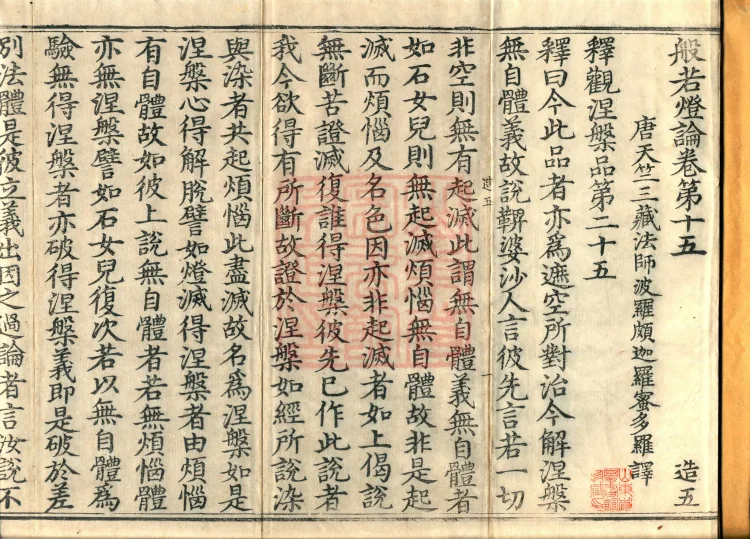 般若燈論卷第十五　　造五
唐天竺三藏法師波羅頗迦羅蜜多羅譯
釋觀涅槃品第二十五
釋曰今此品者亦爲遮空所對治令解涅槃
無自體義故說鞞婆沙人言彼先言若一切
造五
非空則無有起滅此謂無自體義無自體者
如石女兒則無起滅煩惱無自體故非是起
滅而煩惱及名色因亦非起滅者如上偈說
無斷苦證滅復誰得涅槃彼先已作此說者
我今欲得有所斷故證於涅槃如經所說染
與染者共起煩惱此盡滅故名爲涅槃如是
涅槃心得解脫譬如燈滅得涅槃者由煩惱
有自體故如彼上說無自體者若無煩惱體
亦無涅槃譬如石女兒復次若以無自體爲
驗無得涅槃者亦破得涅槃義即是破於差
別法體是彼立義出因之過論者言汝說不